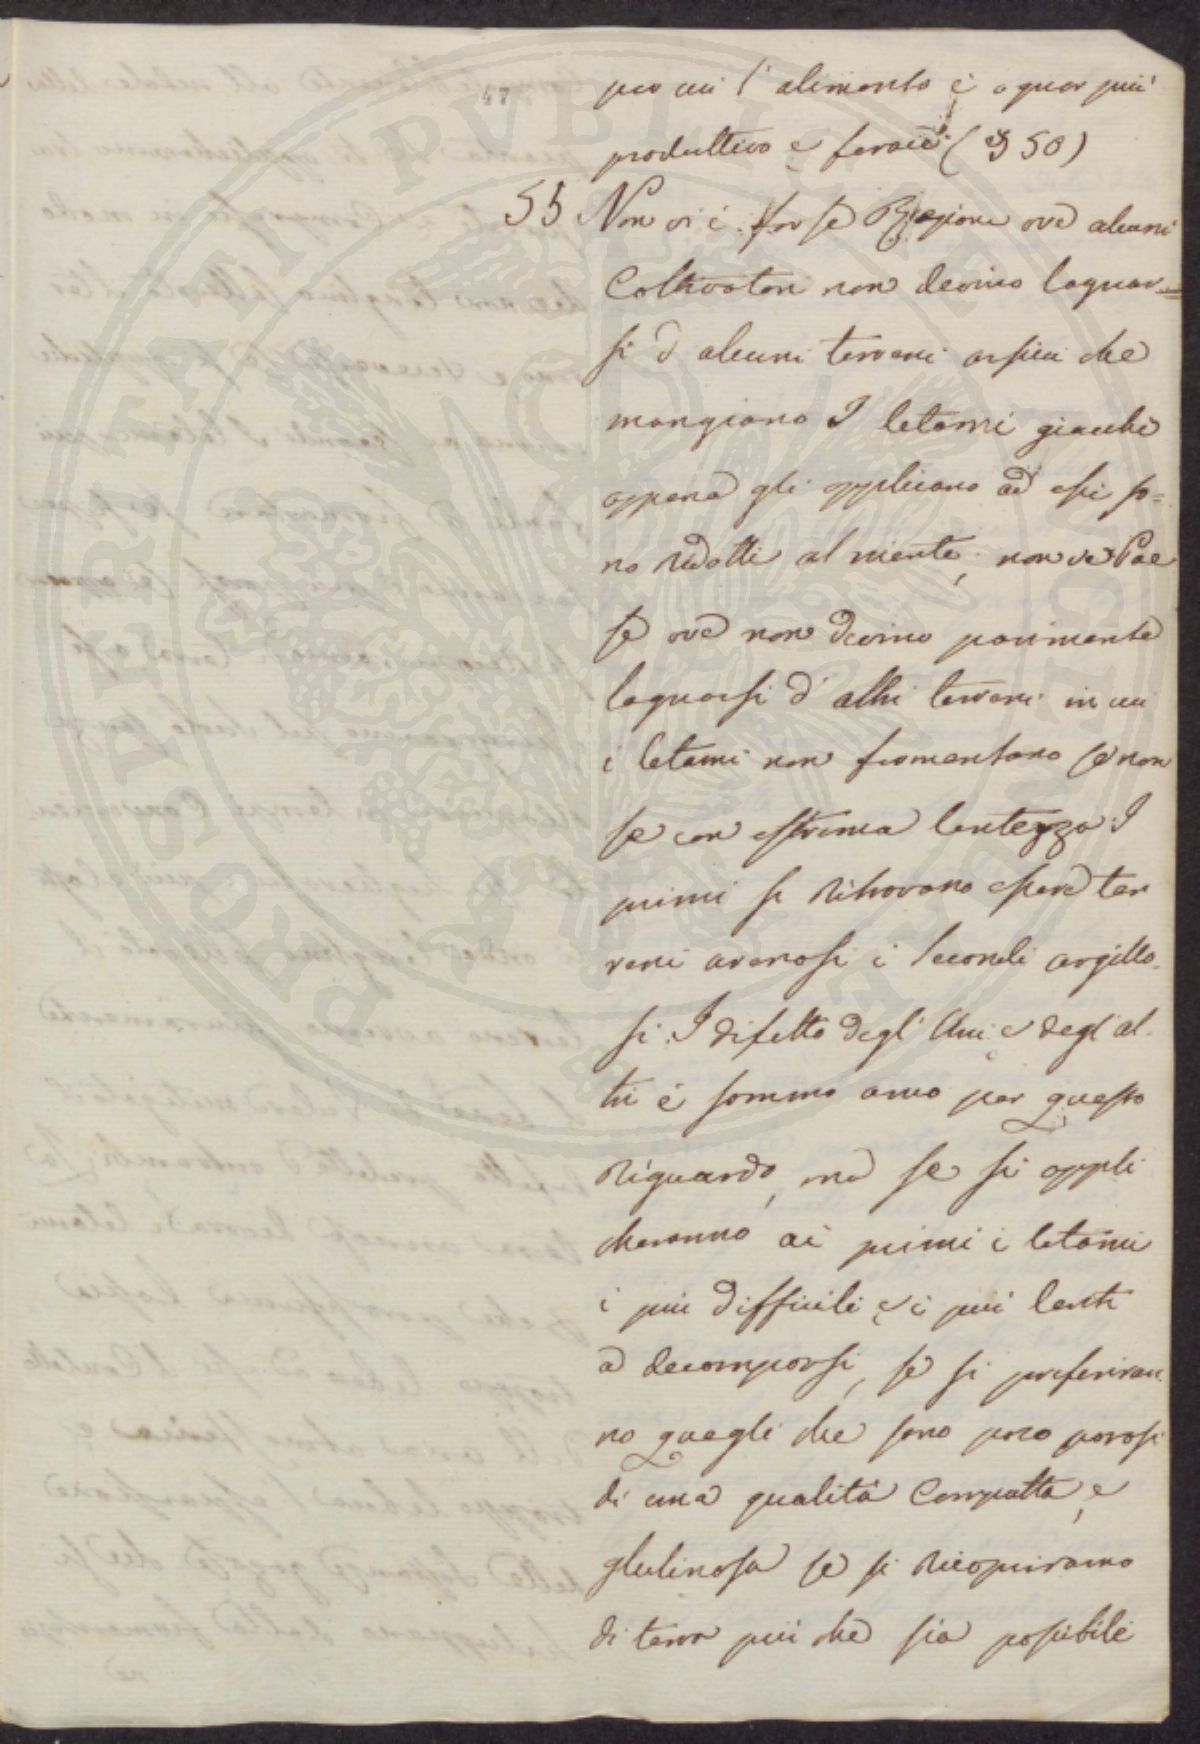 47
per cui l'alimento è ognor più
produttivo e ferace (§ 50)
55 Non vi è forse Regione ove alcuni
Coltivatori non devino lagnar=
si d alcuni terreni assiai che
mangiano I letami giacchè
appena gli applicano ad essi so=
no ridotti al niente, non ve Pae
se ove non devino parimente
lagnarsi d'altri terreni in cui
i letami non fromentano se non
se con estrema lentezza. I
primi si ritrovano essere ter
reni arenosi i secondi argillo-
si. I difetto degl'Uni e degl'al-
tri è sommo anco per questo
riguardo, ma se si appli
cheranno ai primi i letami
i piu difficili e i più lenti
a decomporsi, se si preferiran-
no quegli che sono poco porosi
di una qualità Compatta, e
glutinosa se si ricopriranno
di terra più che sia possibile
PROSPERITATI PVBLICAE AVGENDAE